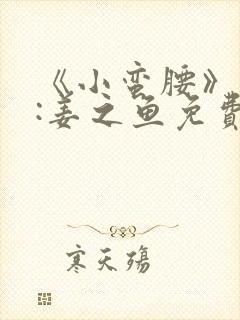 《小蛮腰》
:姜之鱼免費
寒天殇